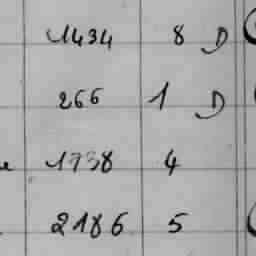 1434 8 D
266 1 D
1738 4
2186 5